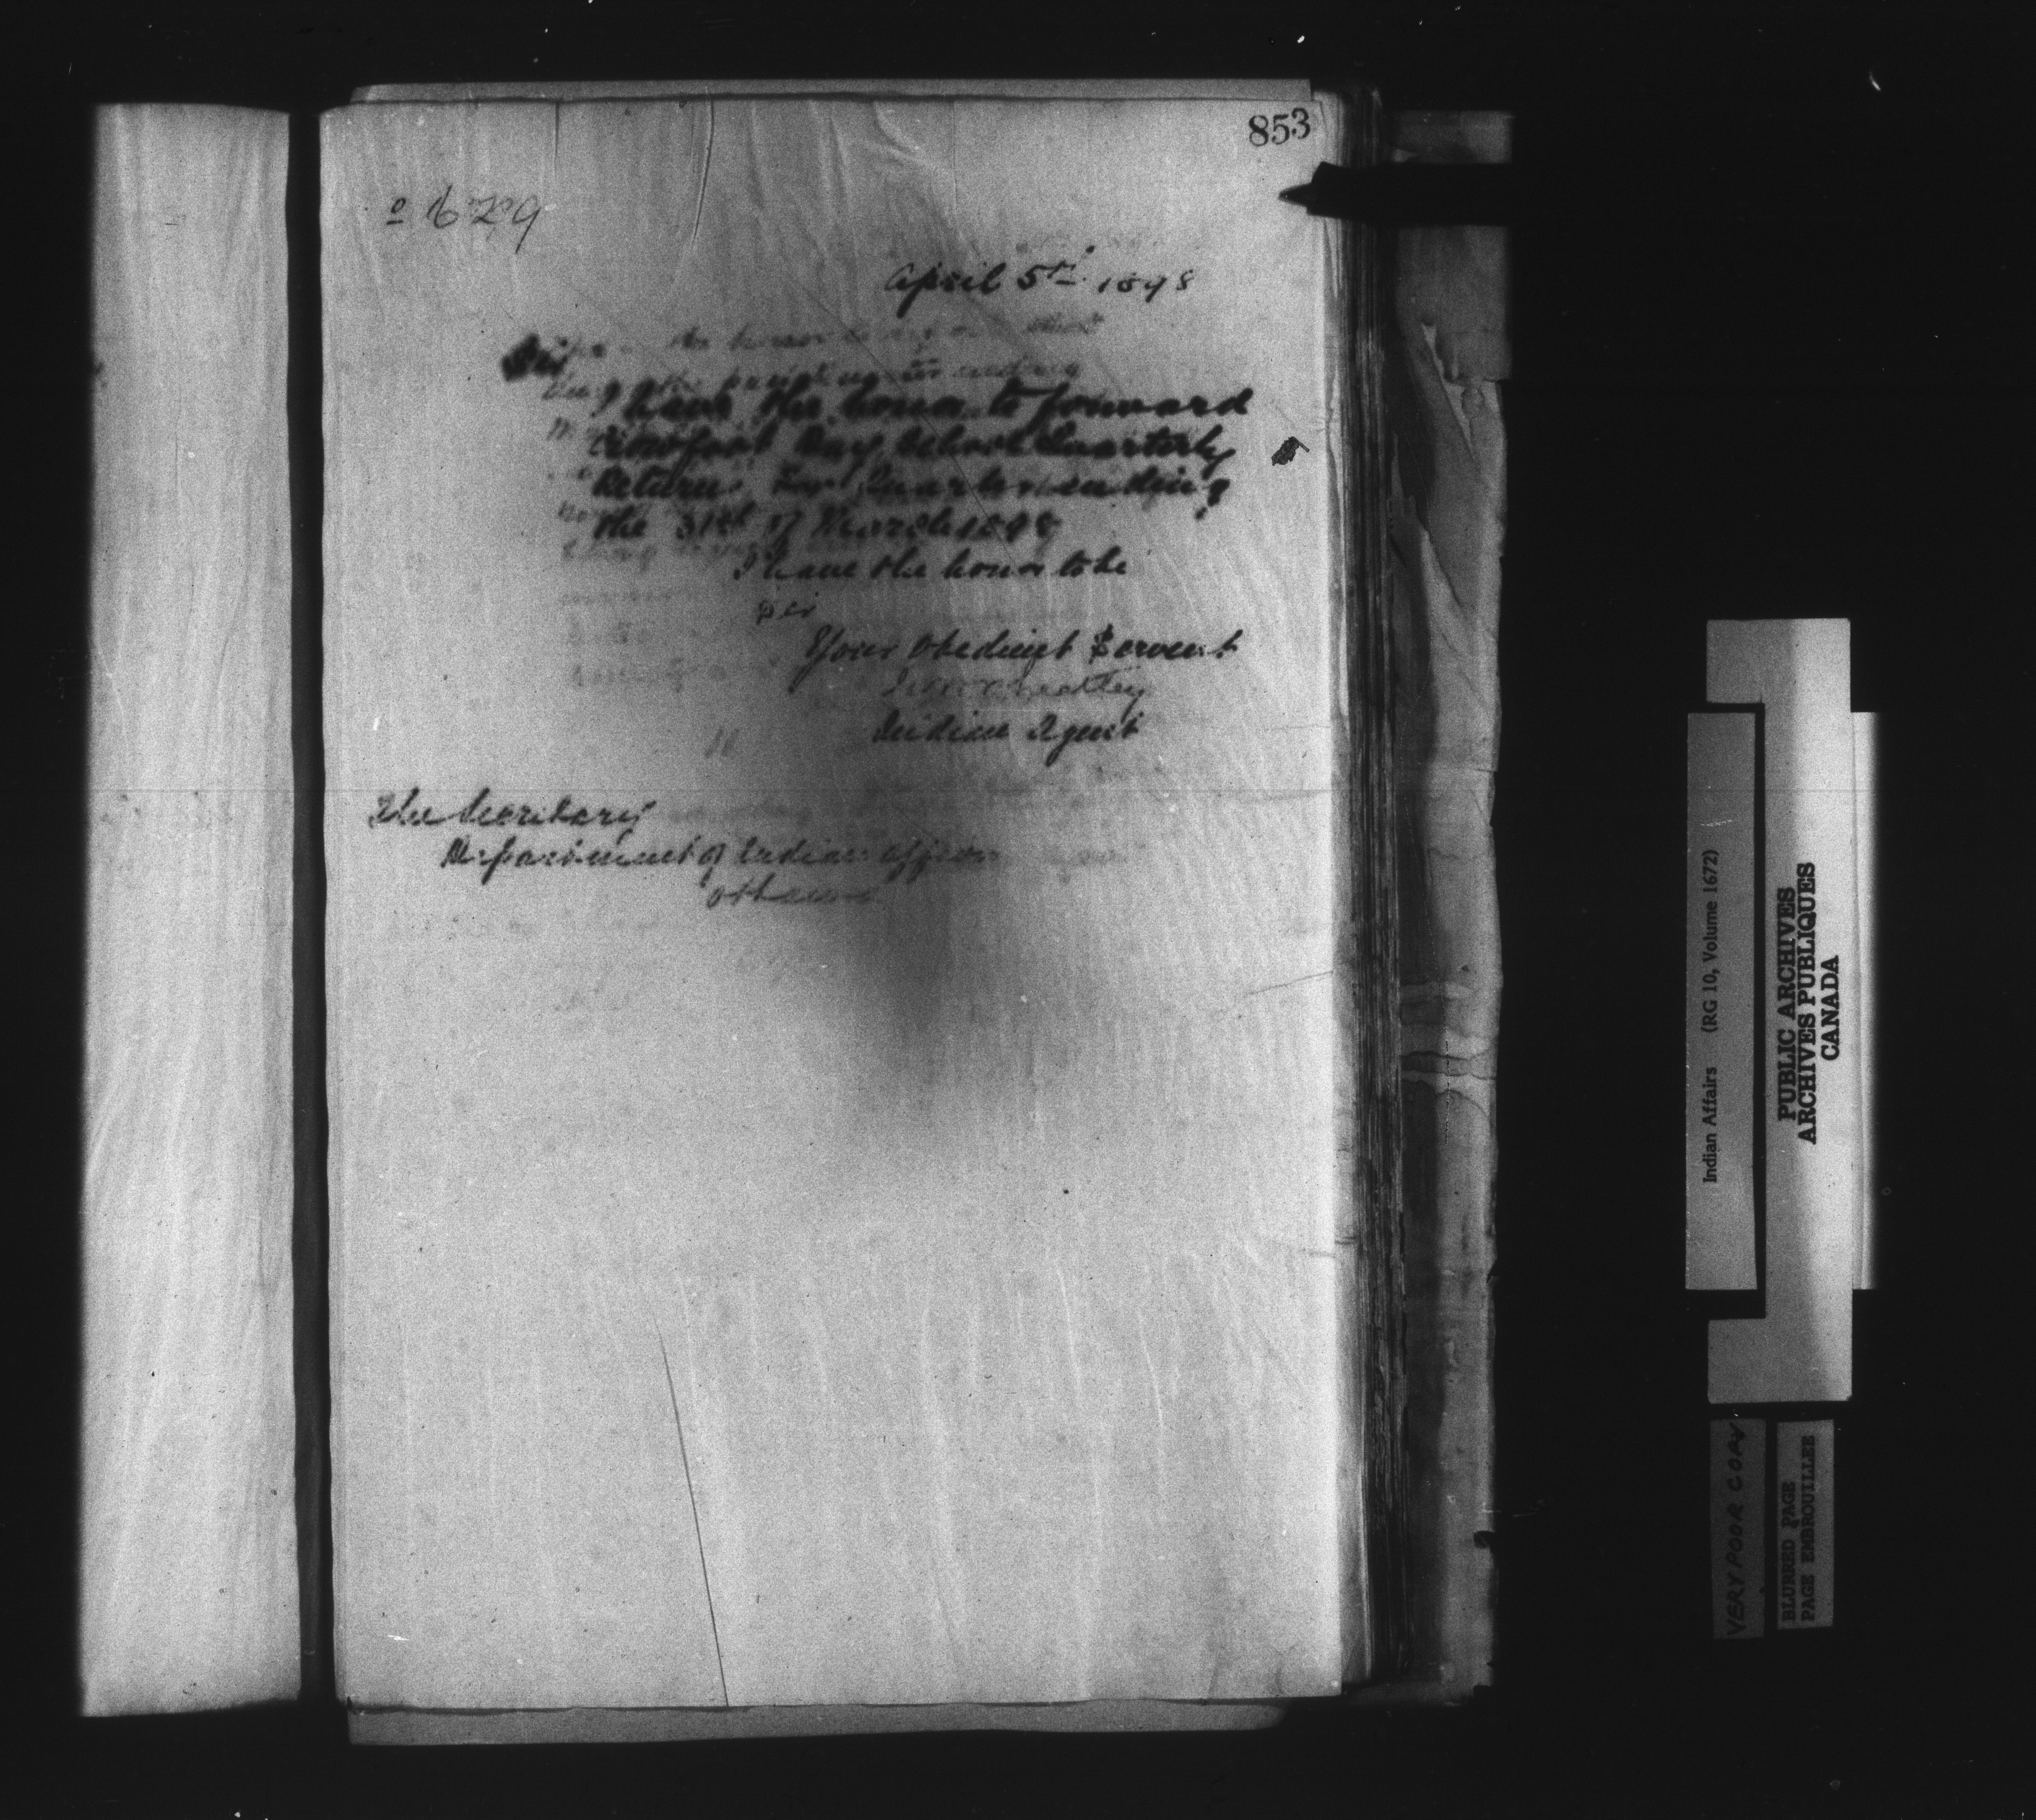 853
º 629
April 5th 1898
Sir
I have the honor to forward
Crowfoot Day School Quarterly
Return For Quarter ending
the 31st of March 1898
I have the honor to be
Sir
Your obedient Servent
Indian Agent
The Secritary
Department of Indian Affairs
Ottawa
Indian Affairs (RG 10, Volume 1672)
PUBLIC ARCHIVES
ARCHIVES PUBLIQUES
CANADA
VERY POOR COPY
BLURRED PAGE
PAGE EMBROUILLEE